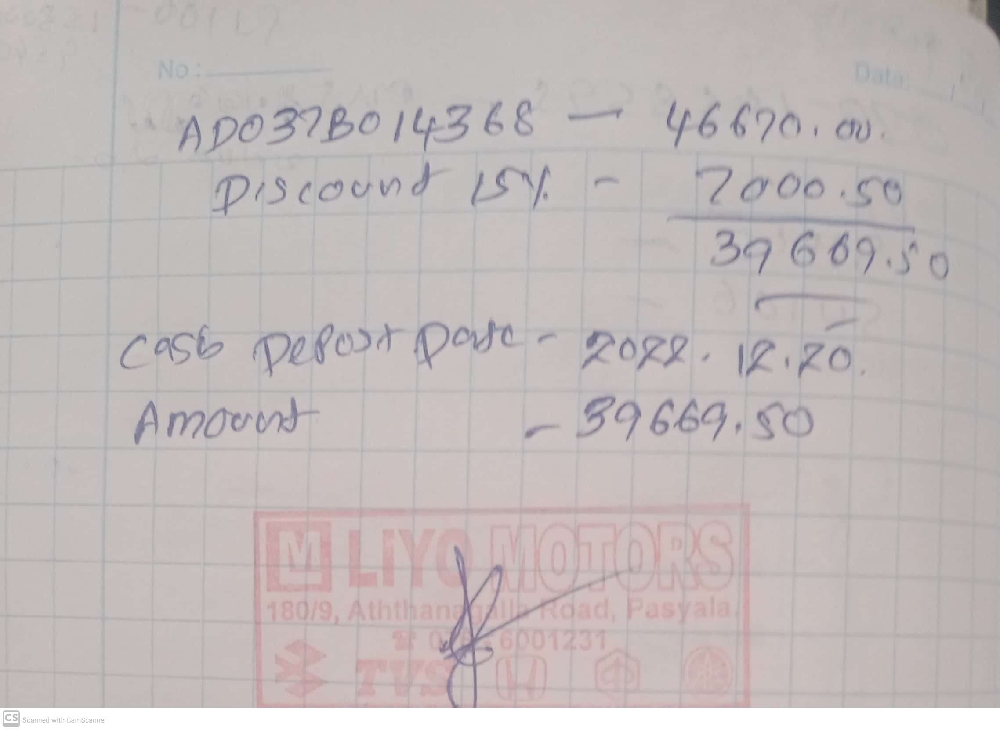 No:
Date:
AD037B014368 — 46670.00.
Discount 15% - 7000.50
39669.50
Cash Deposit Date - 2022.12.20.
Amount - 39669.50
M LIYO MOTORS
180/9, Aththanagalla Road, Pasyala.
6001231
TVS
CS Scanned with CamScanner